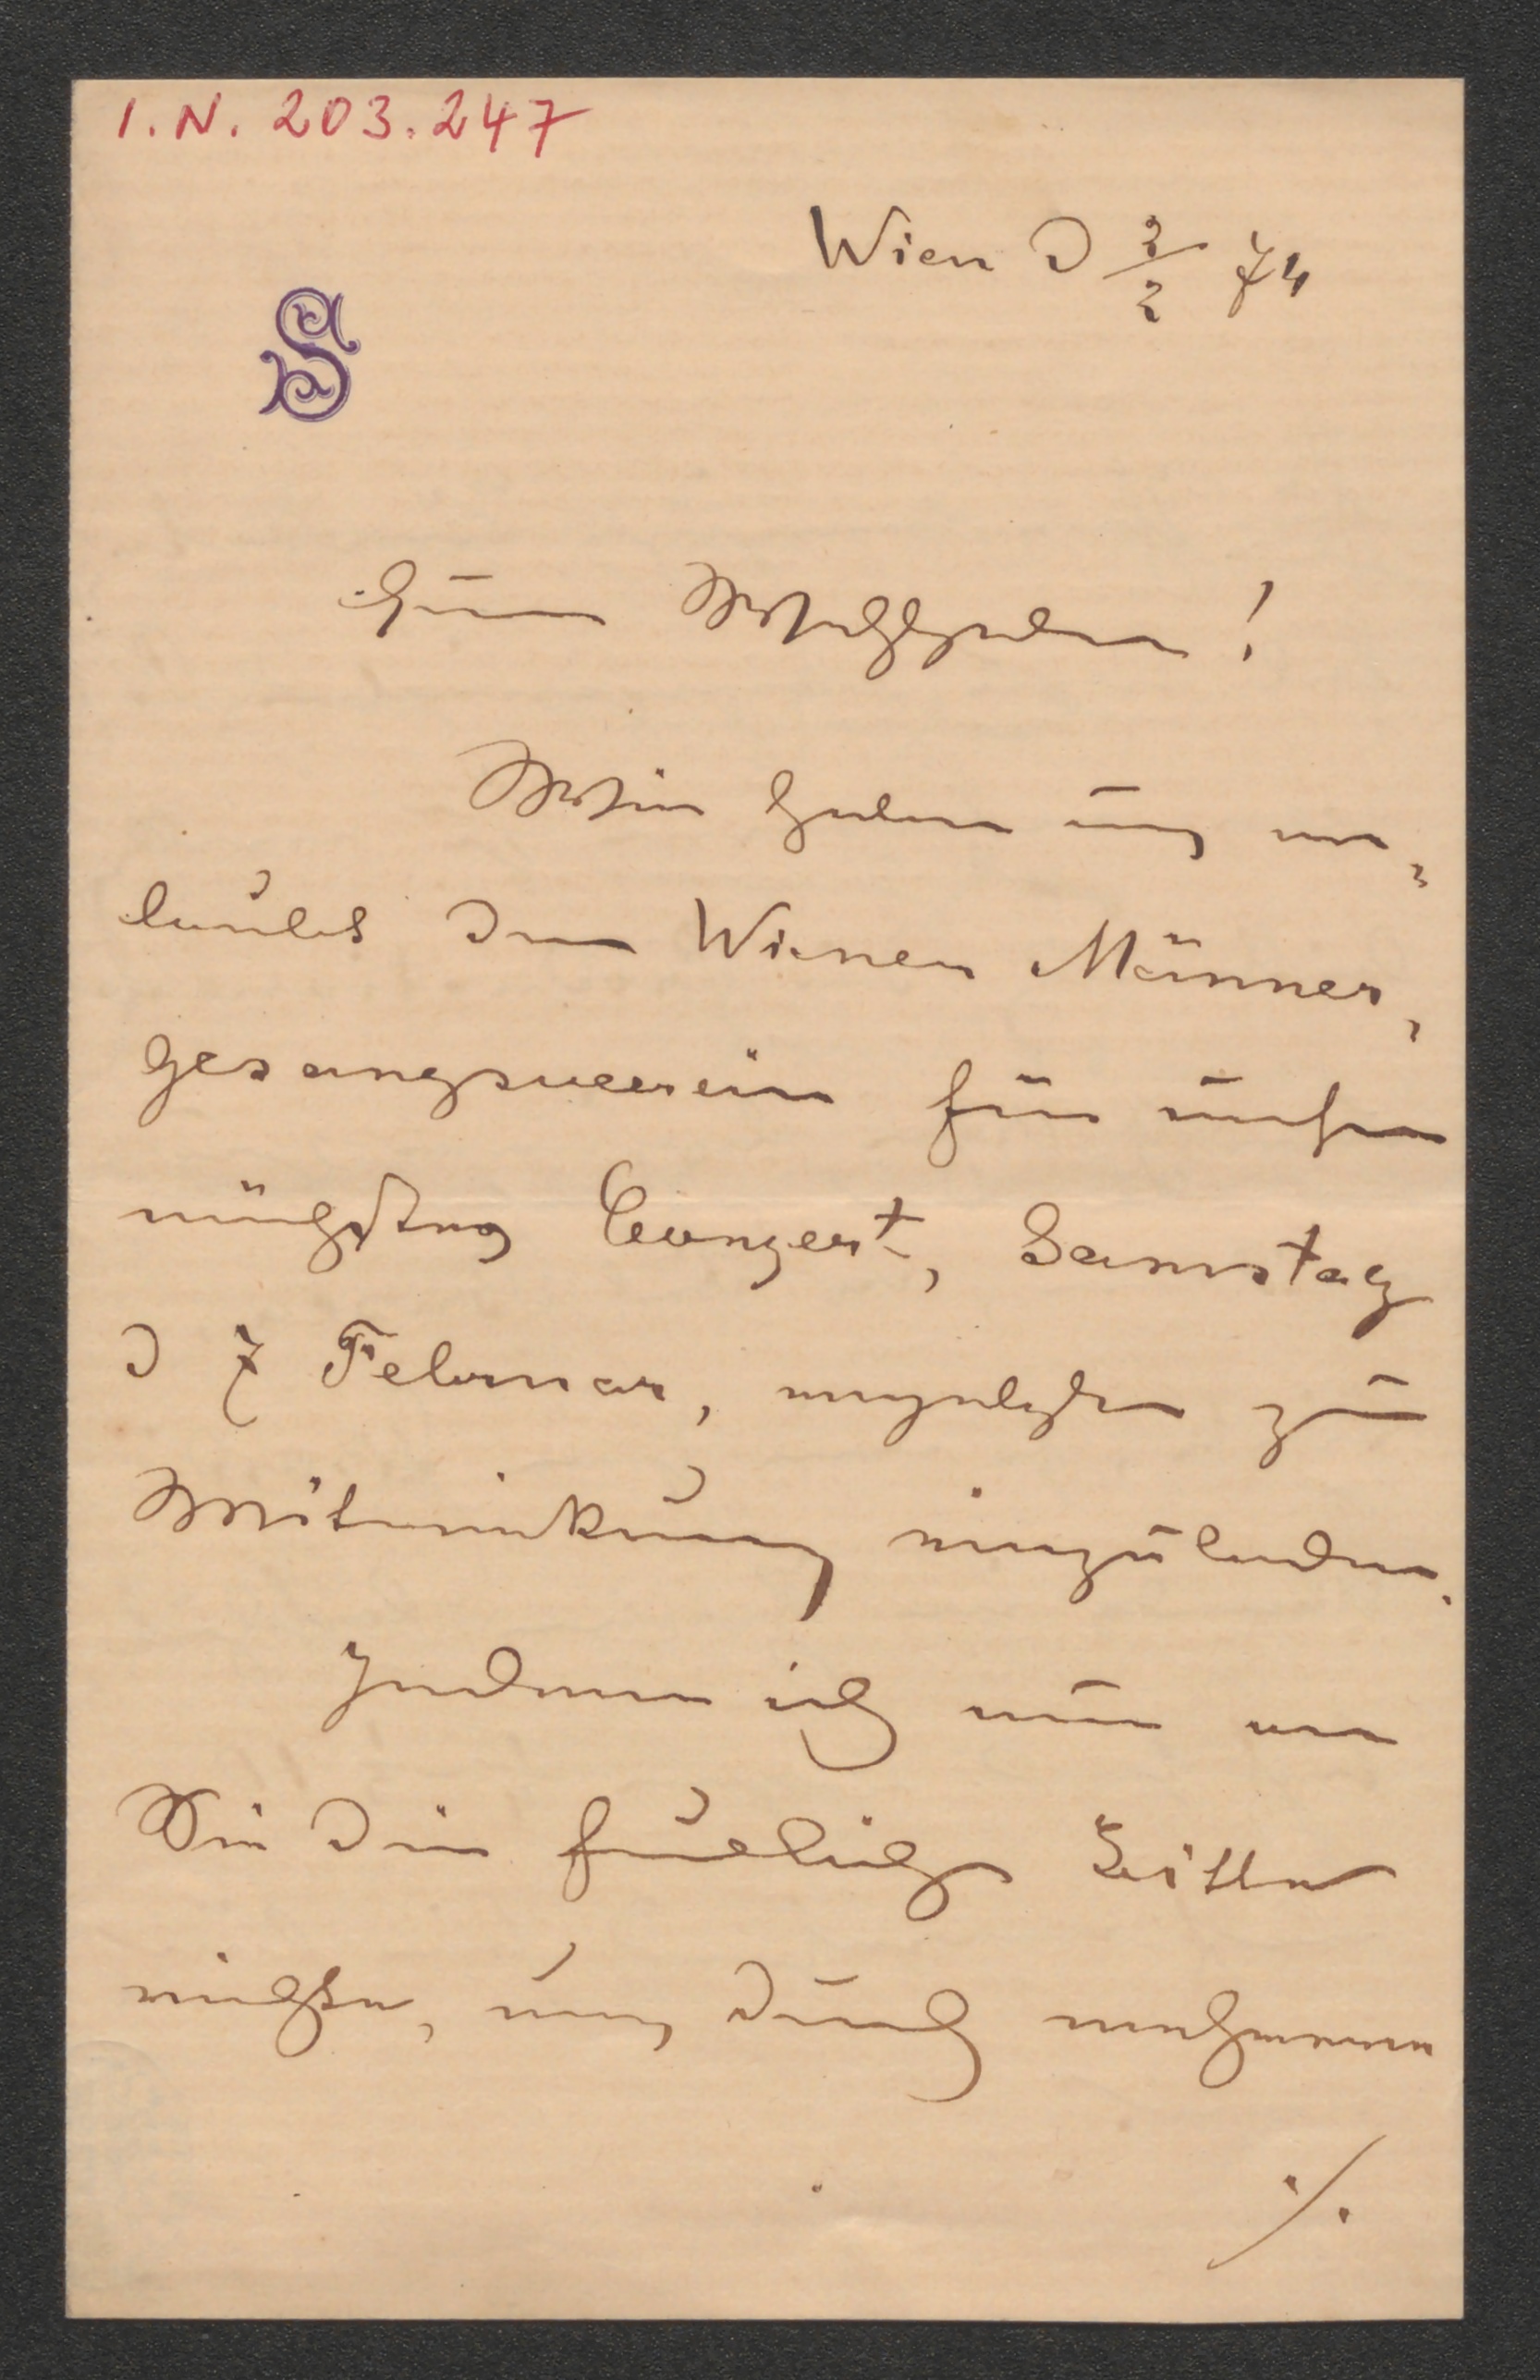 I.N. 203.247
Wien d 2/2 74
S
Euer Wohlgeboren!
Wir haben uns er=
laubt den Wiener Männer=
gesangsverein für unser
nächstes Conzert, Samstag
d 7 Februar, ergebenst zur
Mitwirkung einzuladen.
Indem ich nun an
Sie die freundliche Bitte
richte, uns durch
./.